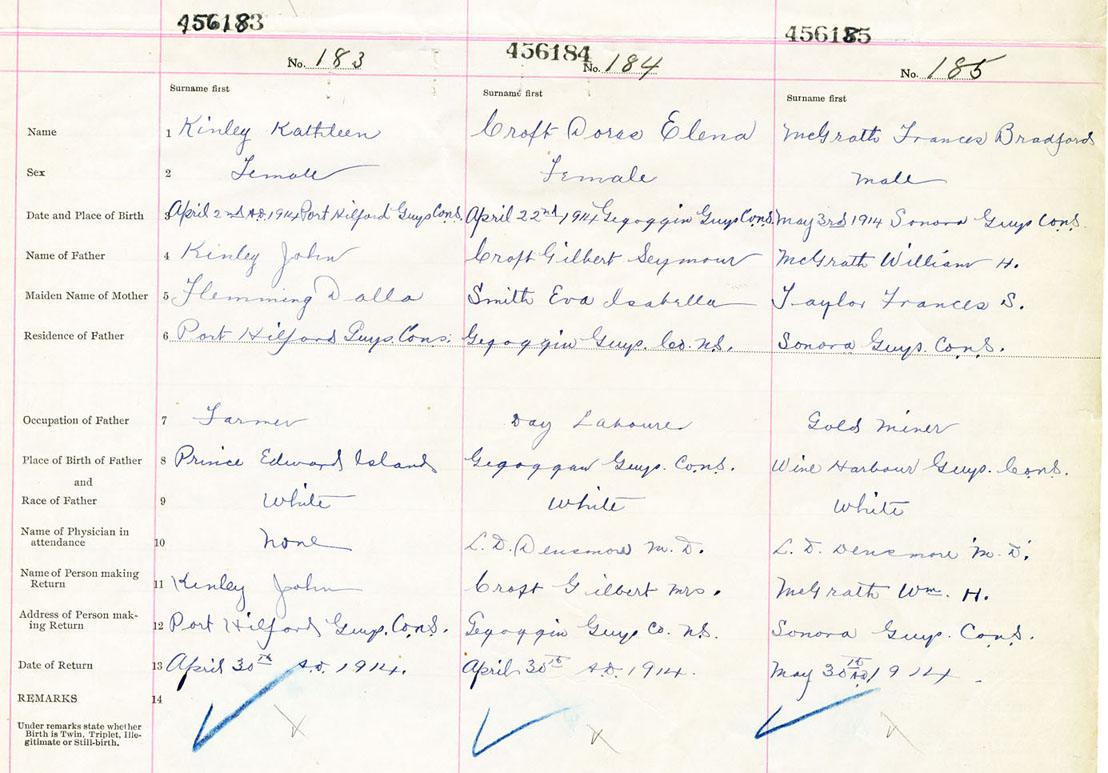 456183 456184 456185
No. 183 No. 184 No. 185
Surname first Surname first Surname first
Name 1 Kinley Kathleen Croft Doras Elena McGrath Frances Bradford
Sex 2 Female Female Male
Date and Place of Birth 3 April 2nd A.D. 1914 Port Hilford Guys Co N.S. April 22nd 1914 Gegoggin Guys Co N.S. May 3rd 1914 Sonora Guys Co N.S.
Name of Father 4 Kinley John Croft Gilbert Seymour McGrath William H.
Maiden Name of Mother 5 Flemming Dalla Smith Eva Isabella Taylor Frances S.
Residence of Father 6 Port Hilford Guys. Co N.S. Gegoggin Guys. Co. N.S. Sonora Guys. Co. N.S.
Occupation of Father 7 Farmer Day Labourer Gold Miner
Place of Birth of Father 8 Prince Edward Island Gegoggan Guys. Co N.S. Wine Harbour Guys. Co N.S.
and
Race of Father 9 White White White
Name of Physician in
attendance 10 None L. D. Densmore M.D. L. D. Densmore M.D.
Name of Person making
Return 11 Kinley John Croft Gilbert Mrs. McGrath Wm. H.
Address of Person mak-
ing Return 12 Port Hilford Guys. Co N.S. Gegoggin Guys Co. N.S. Sonora Guys. Co N.S.
Date of Return 13 April 30th A.D. 1914. April 30th A.D. 1914. May 30th A.D. 1914.
REMARKS 14
Under remarks state whether
Birth is Twin, Triplet, Ille-
gitimate or Still-birth.